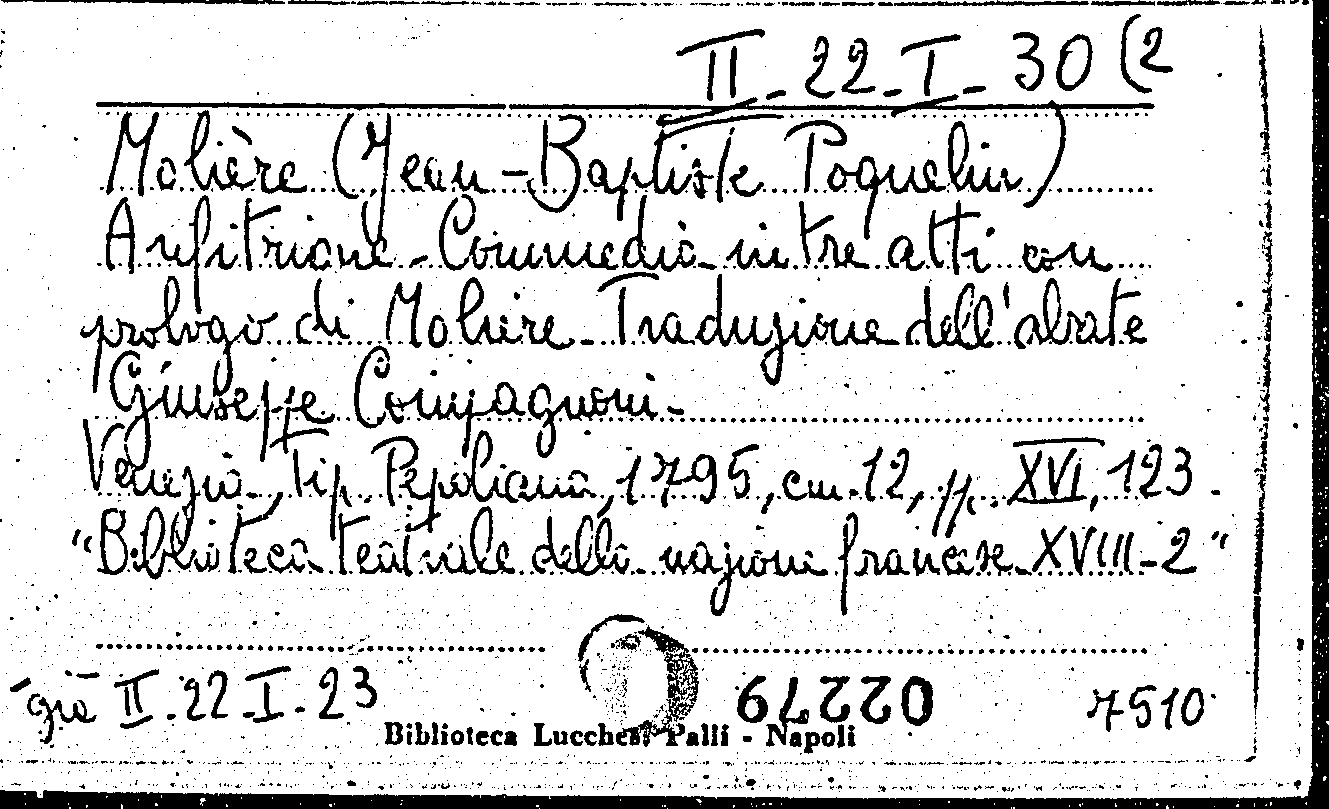 II-22-I-30 (2
Molière (Jean-Baptiste Poquelin)
Anfitrione - Commedia in tre atti con
prologo di Molière - Traduzione dell'abate
Giuseppe Compagnoni -
Venezia, Tip. Pepoliana, 1795, cm. 12, pp. XVI, 123.
"Biblioteca teatrale della nazione francese XVIII-2"
già II-22-I-23
02279
7510
Biblioteca Lucchesi Palli - Napoli